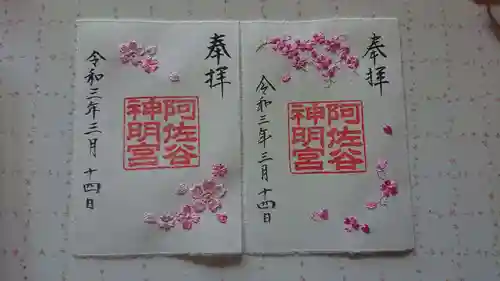 奉拝
阿佐谷
神明宮
令和三年三月十四日
奉拝
阿佐谷
神明宮
令和三年三月十四日